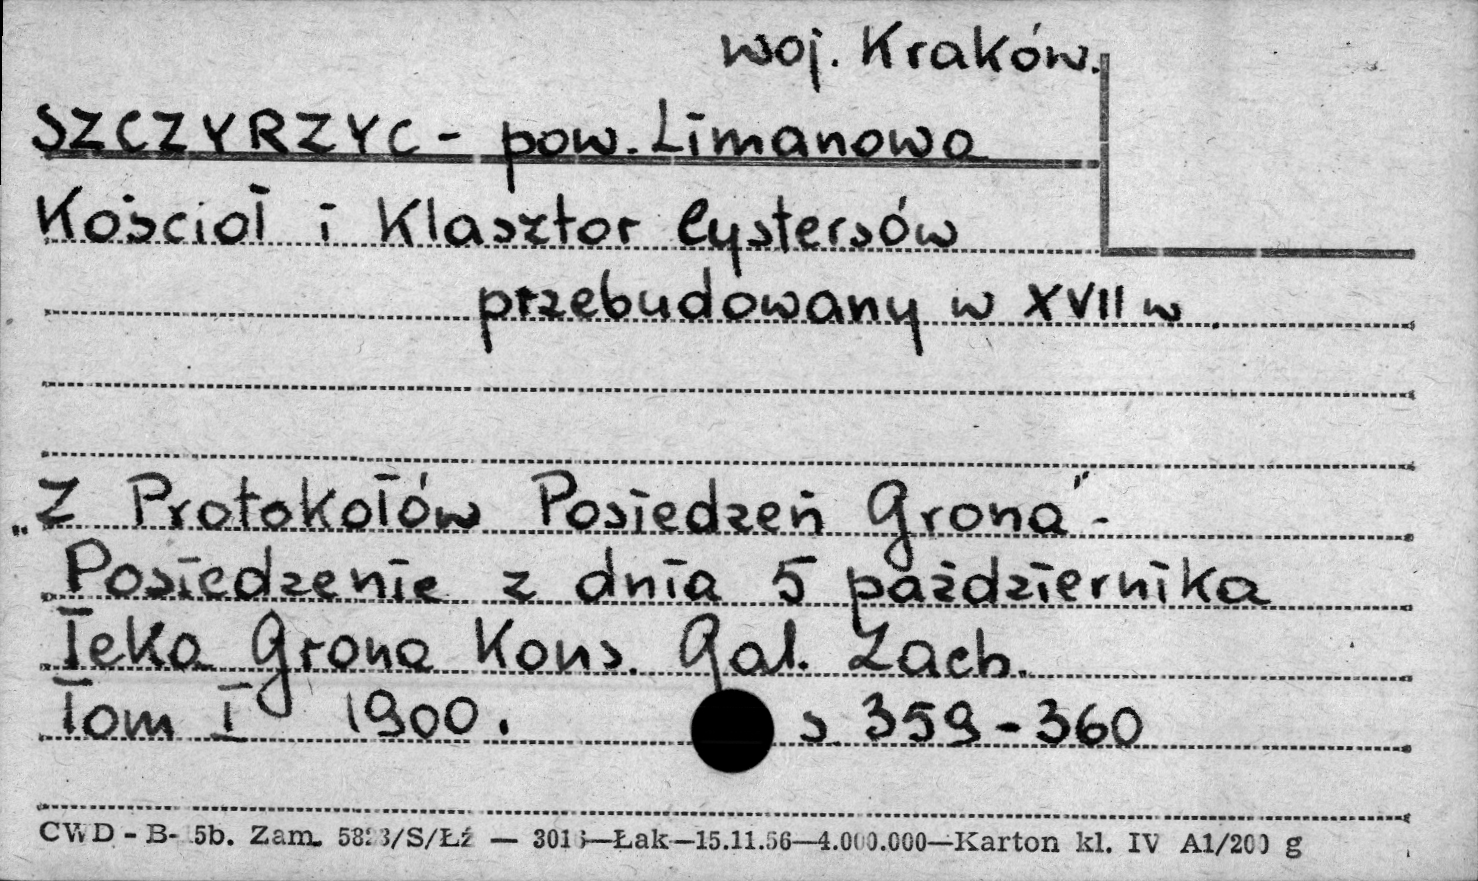 woj. Kraków.
SZCZYRZYC - pow. Limanowa
Kościoł i Klasztor Cystersów
przebudowany w XVII w.
„Z Protokołów Posiedzeń Grona" -
Posiedzenie z dnia 5 października
Teka Grona Kons. Gal. Zach.
Tom I 1900. s. 359-360
CWD - B- 5b. Zam. 5823/S/Łź — 3016—Łak—15.11.56—4.000.000—Karton kl. IV A1/200 g